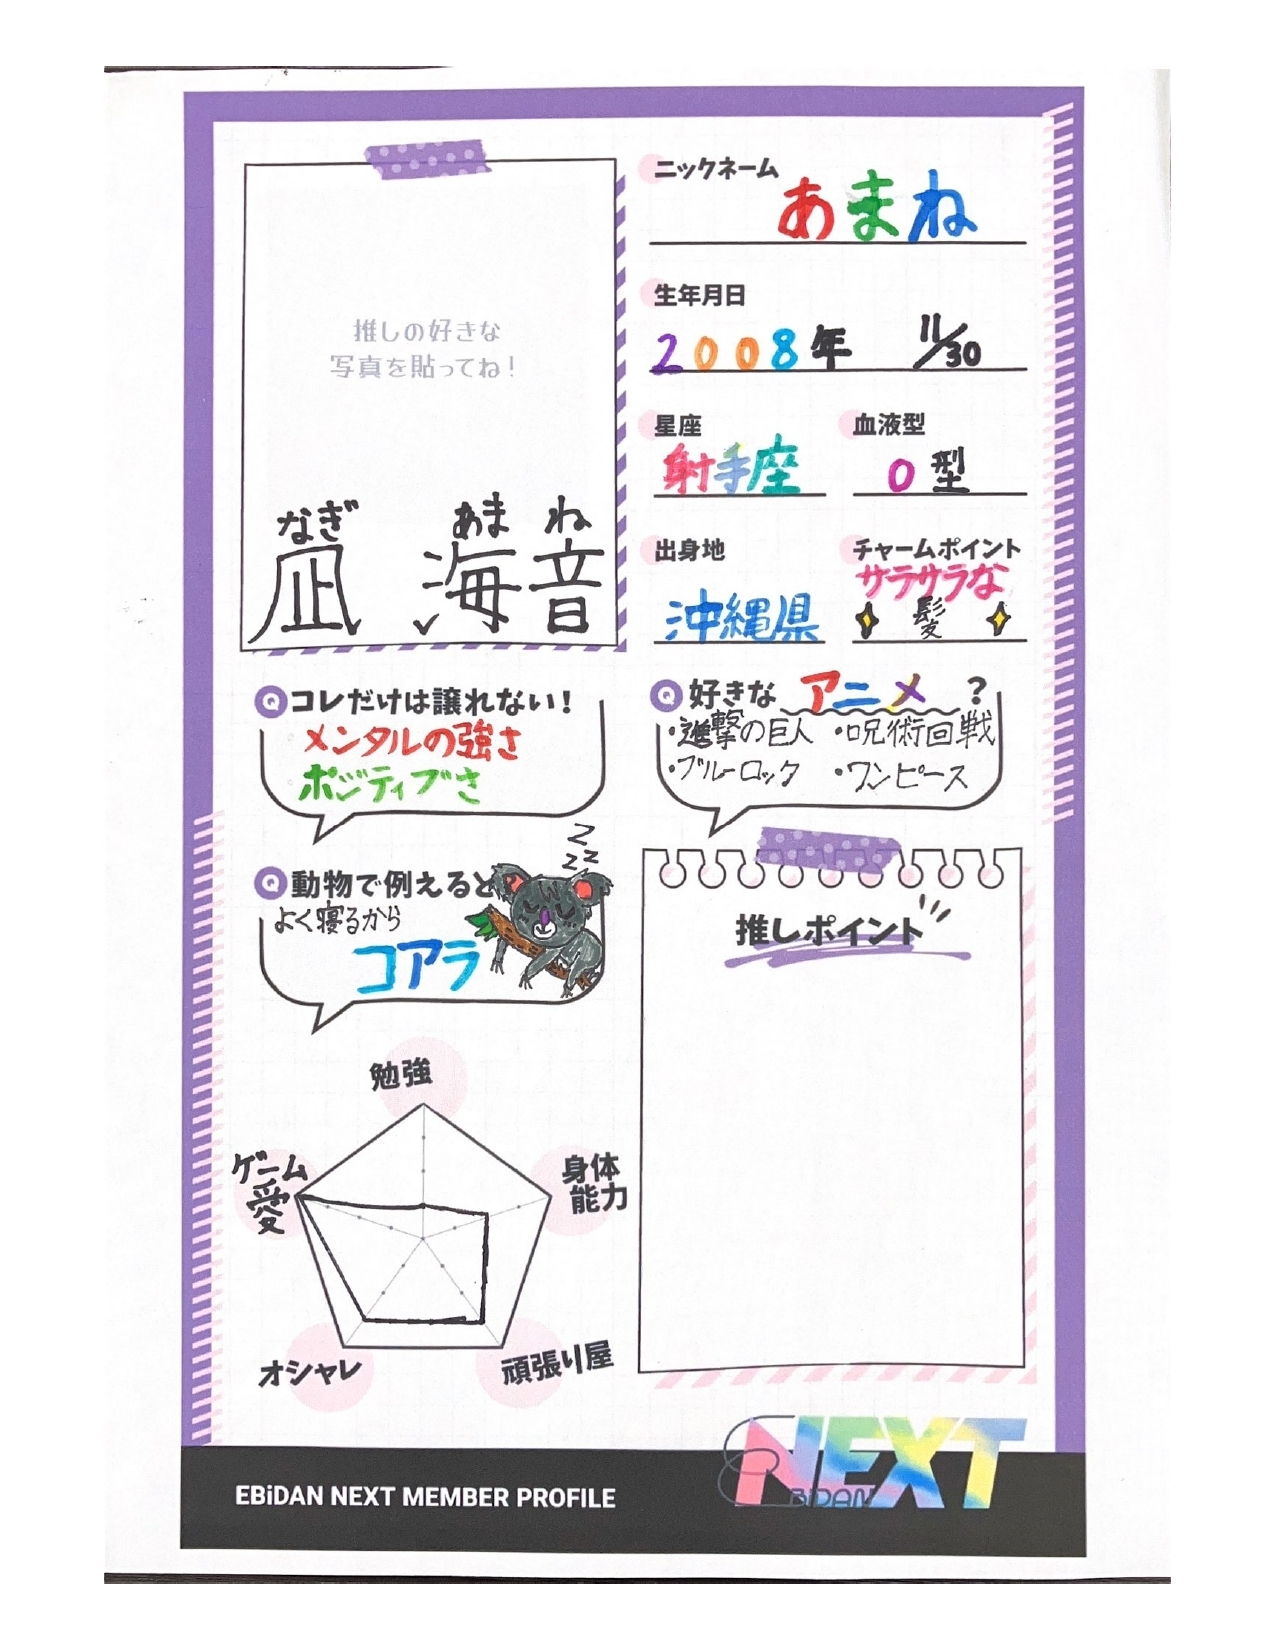 ニックネーム
あまね
推しの好きな
写真を貼ってね！
生年月日
2008年 11/30
星座
射手座
血液型
O型
なぎ あま ね
凪 海音
出身地
沖縄県
チャームポイント
サラサラな
髪
Q コレだけは譲れない！
メンタルの強さ
ポジティブさ
Q 好きな アニメ ？
・進撃の巨人 ・呪術回戦
・ブルーロック ・ワンピース
zzz
Q 動物で例えると
よく寝るから
コアラ
推しポイント
勉強
ゲーム
愛
身体
能力
オシャレ
頑張り屋
EBiDAN NEXT MEMBER PROFILE
NEXT
EBiDAN